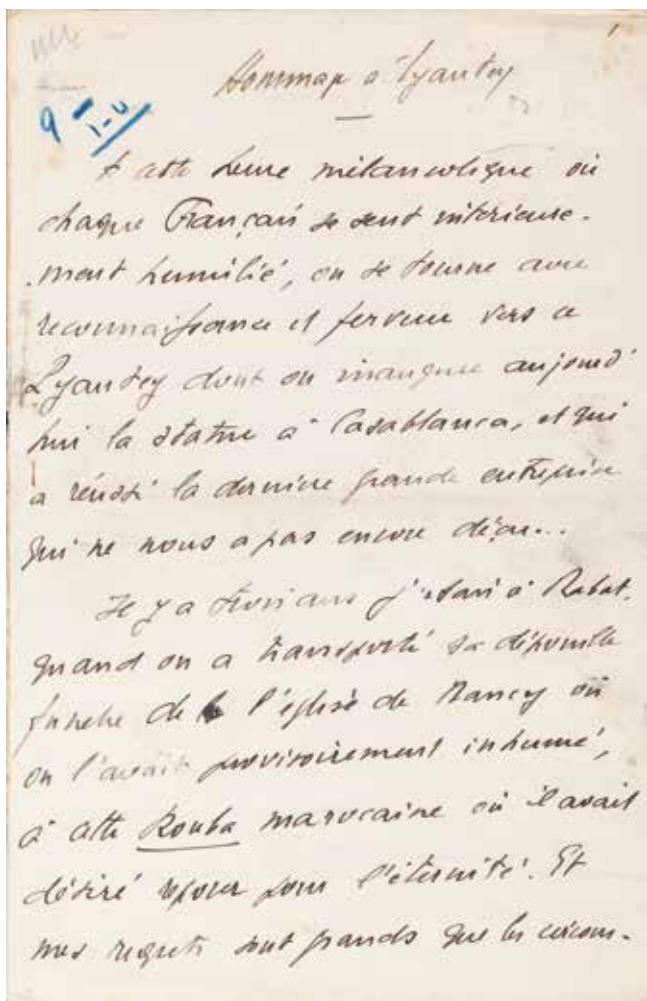 1
Hommage à Lyautey
9
A cette heure mélancolique où
chaque Français se sent intérieure-
-ment humilié, on se tourne avec
reconnaissance et ferveur vers ce
Lyautey dont on inaugure aujourd'
hui la statue à Casablanca, et qui
a réussi la dernière grande entreprise
qui ne nous a pas encore déçu...
Il y a trois ans j'étais à Rabat,
quand on a transporté sa dépouille
funèbre de l'église de Nancy où
on l'avait provisoirement inhumé,
à cette Kouba marocaine où il avait
désiré reposer pour l'éternité. Et
mes regrets sont grands que les circons-